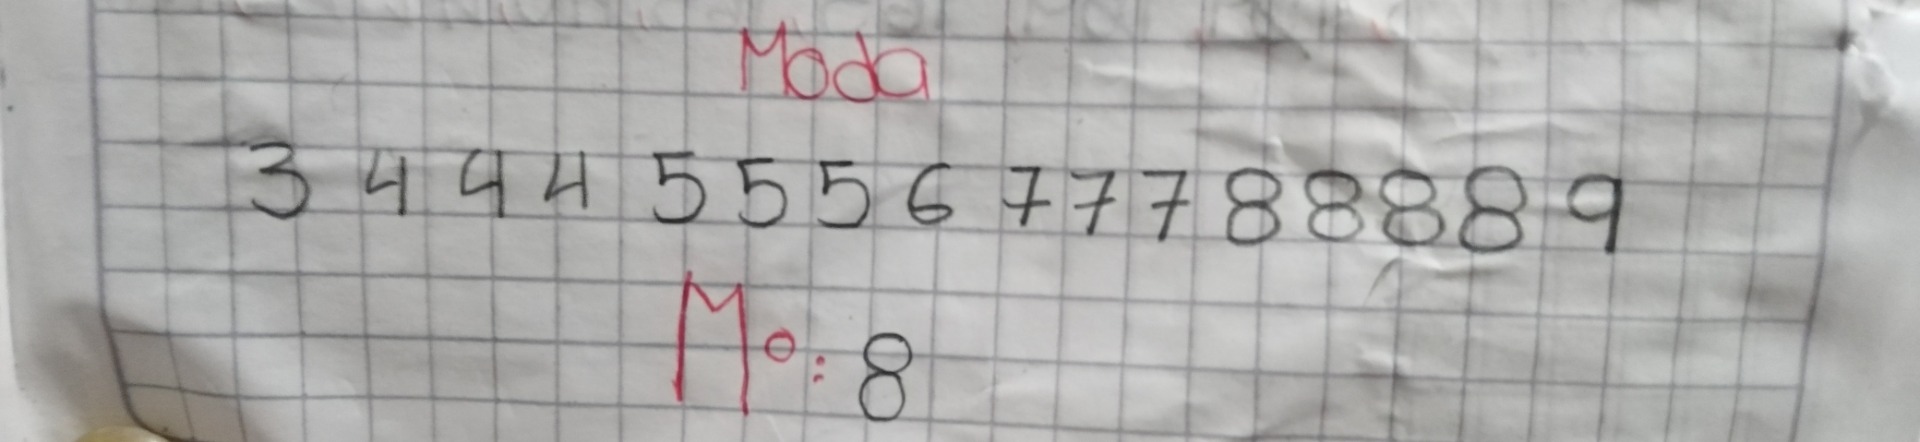 Moda
3 4 4 4 5 5 5 6 7 7 7 8 8 8 8 9
Mo: 8